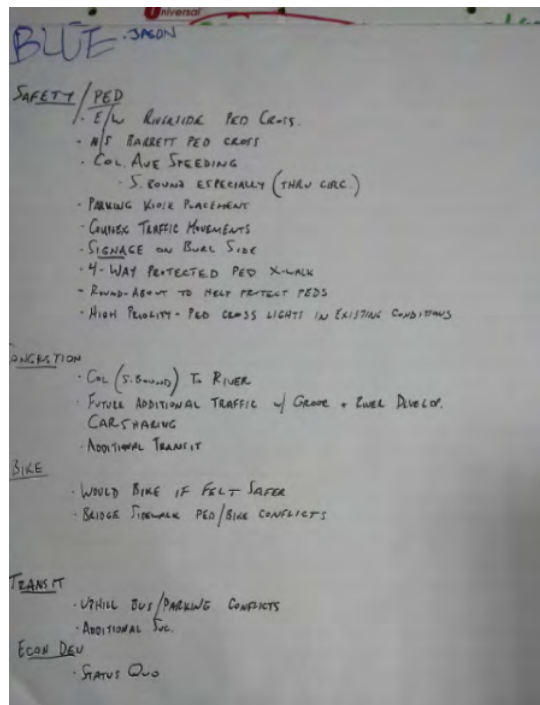 Universal
BLUE - JASON
SAFETY / PED
· E/W RIVERSIDE PED CROSS.
· N/S BARRETT PED CROSS
· COL. AVE SPEEDING
· S. BOUND ESPECIALLY (THRU CIRC.)
· PARKING KIOSK PLACEMENT
· COMPLEX TRAFFIC MOVEMENTS
· SIGNAGE ON BURL SIDE
· 4-WAY PROTECTED PED X-WALK
- ROUND-ABOUT TO HELP PROTECT PEDS
· HIGH PRIORITY - PED CROSS LIGHTS IN EXISTING CONDITIONS
CONGESTION
· COL (S. BOUND) TO RIVER
· FUTURE ADDITIONAL TRAFFIC w/ GROVE + RIVER DEVELOP.
CARSHARING
· ADDITIONAL TRANSIT
BIKE
· WOULD BIKE IF FELT SAFER
· BRIDGE SIDEWALK PED/BIKE CONFLICTS
TRANSIT
· UPHILL BUS/PARKING CONFLICTS
· ADDITIONAL SVC.
ECON DEV
· STATUS QUO